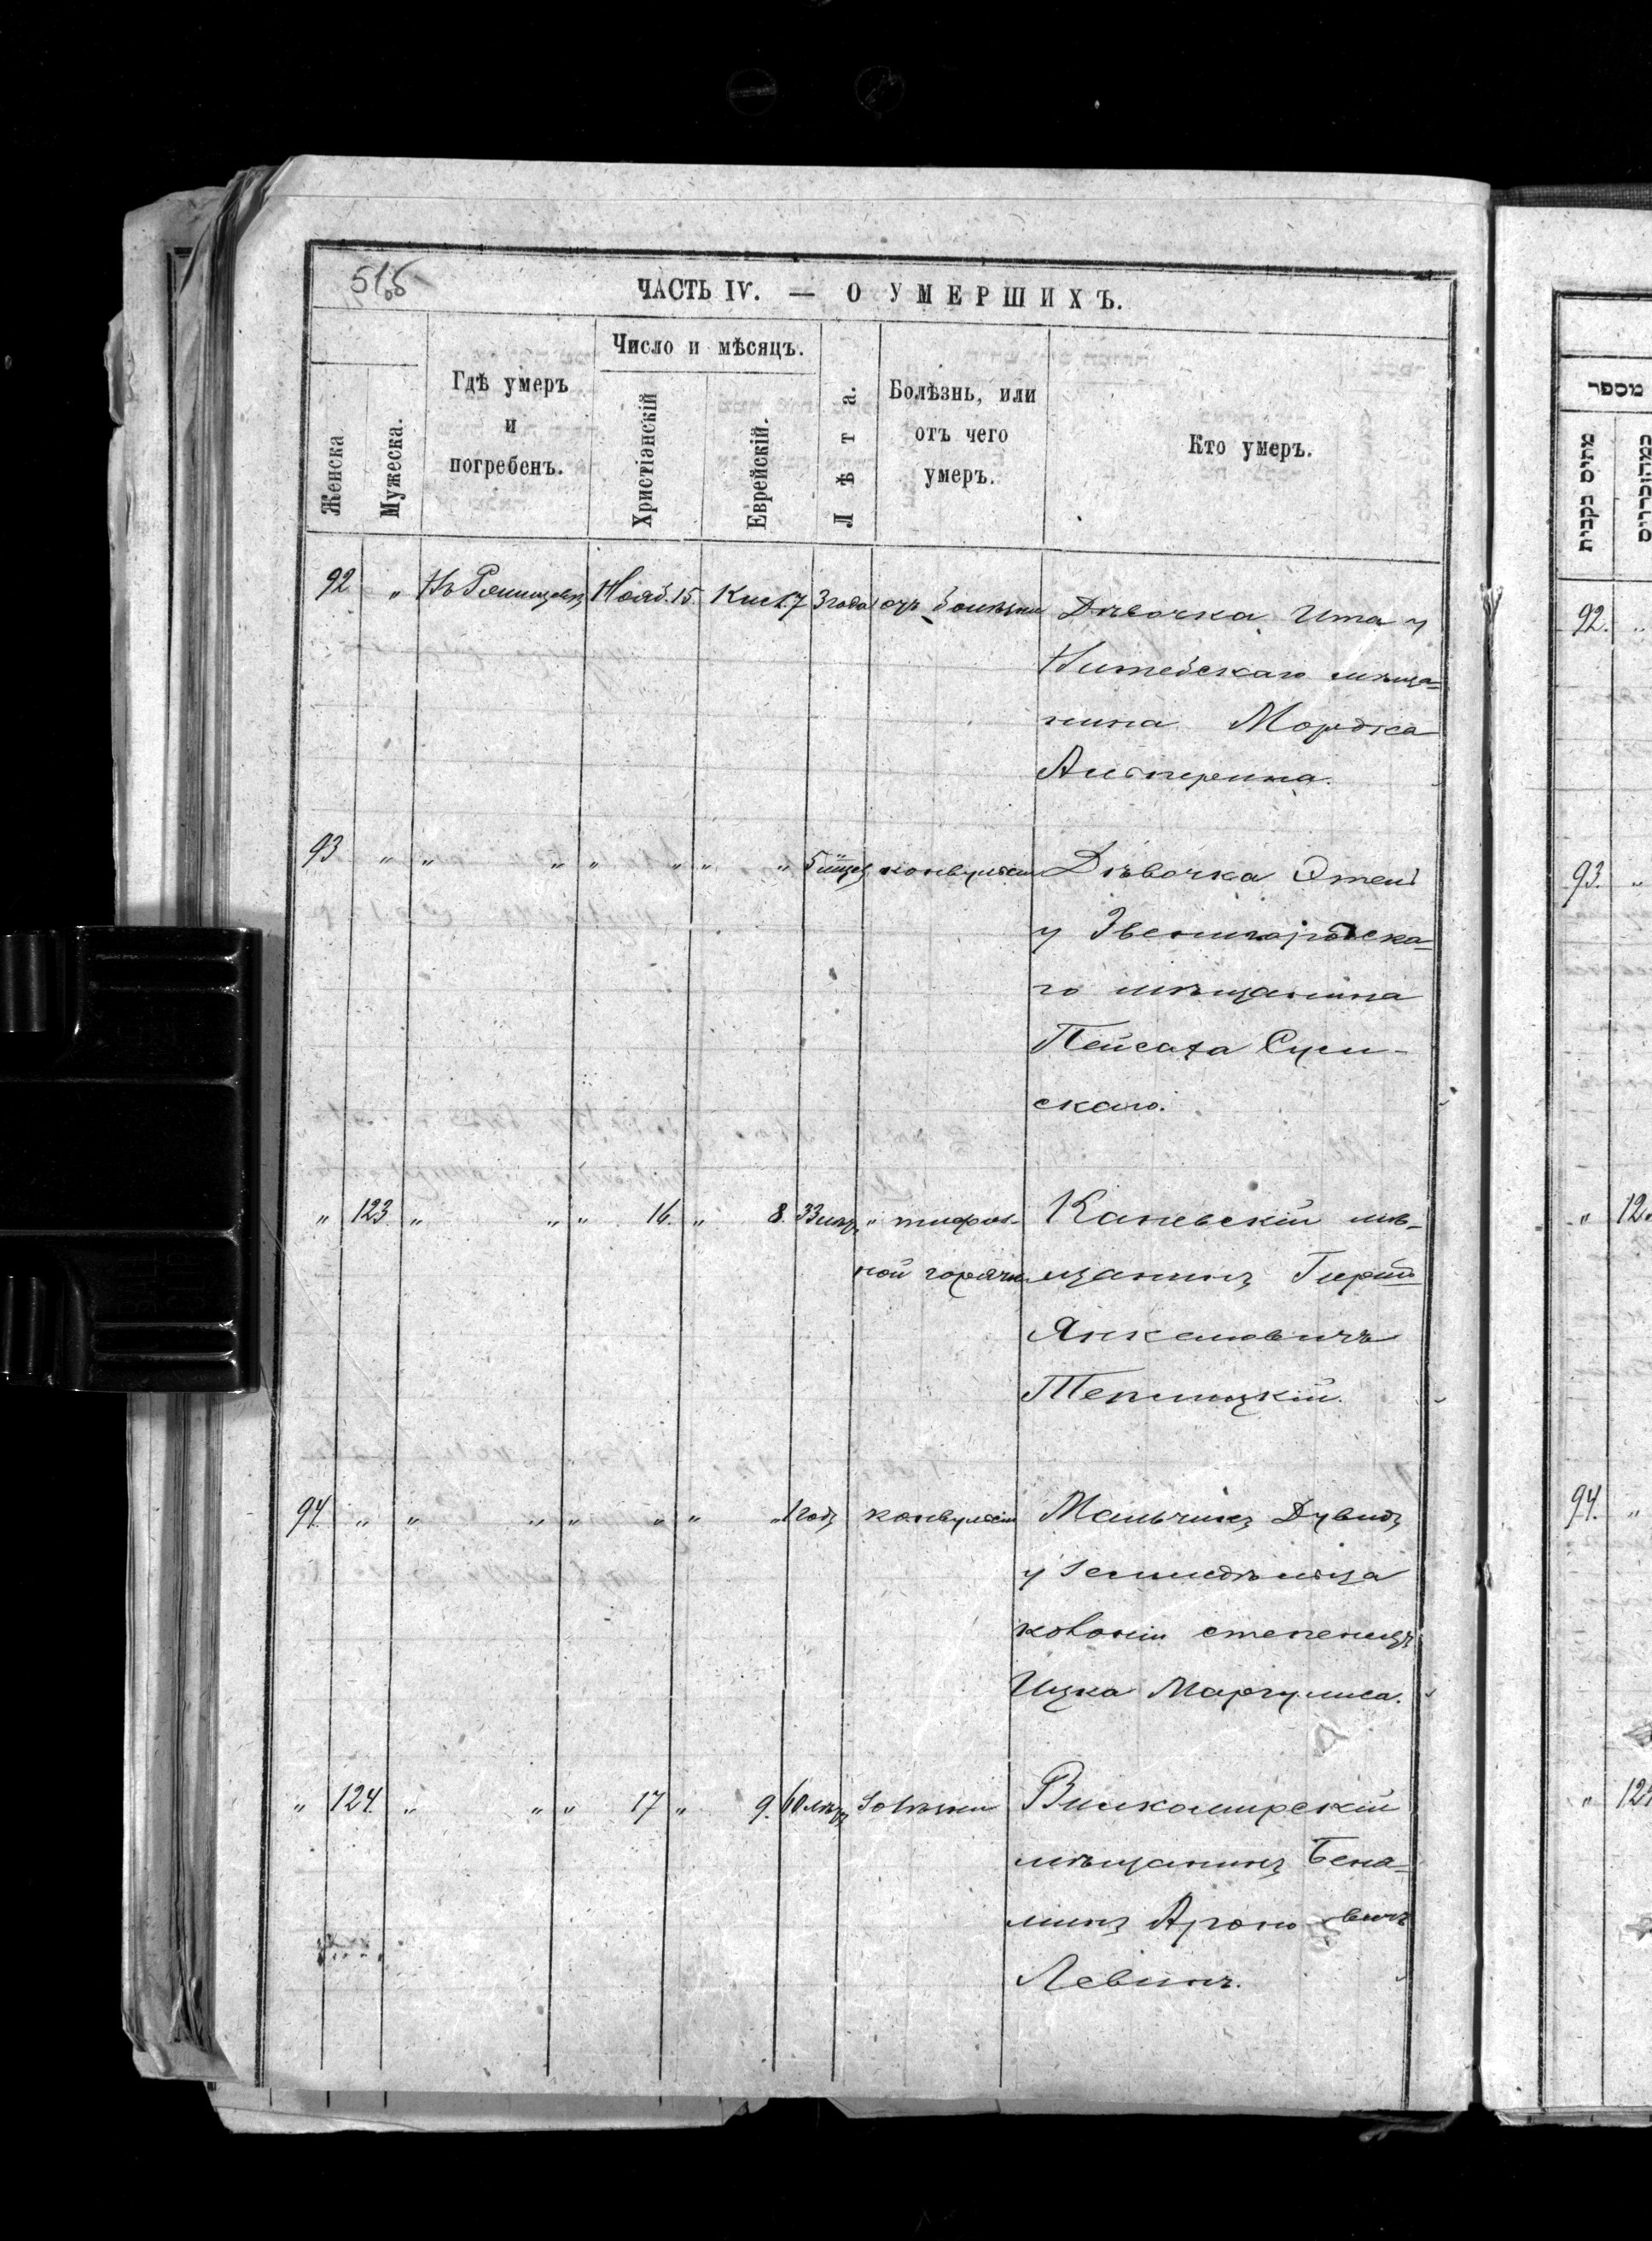 515
ЧАСТЬ IV. — О УМЕРШИХЪ.
Женска
Мужеска.
Гдѣ умеръ
и
погребенъ.
Число и мѣсяцъ.
Христіанскій
Еврейскій.
Лѣта.
Болѣзнь, или
отъ чего
умеръ.
Кто умеръ.
92 " Нояб. 15. Кис. 7 3 года отъ болѣзни Дѣвочка Ита у
Витебскаго мѣща=
нина Мордка
Альперина.
93 " " " " " " " 5 конвульсіи Дѣвочка Этель
у Звенигородска=
го мѣщанина
Пейсаха
скаго.
" 123. " " " 16. " 8. 33 " тифоз-
ной горячк Каневскій мѣ-
щанинъ Гершъ
Янкелевичъ
Теплицкій.
94. " " " " " " " 1 годъ конвульсіи Мальчикъ Дувидъ
у земледѣльца
колоніи степенецъ
Ицка Маргулиса.
" 124. " " " 17 " 9. 60 лѣтъ болѣзни Вилкомирскій
мѣщанинъ Беня=
минъ Ароновичъ
Левинъ.
מספר
מתים נקבות
92. "
93. "
" 12
94. "
" 12